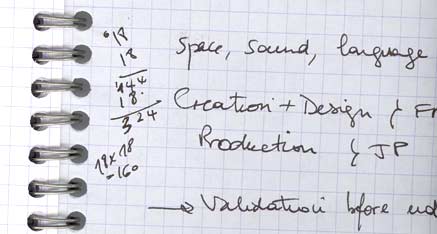 18
18
144
18
324
18 x 18
-160
Space, Sound, language
Creation + Design } Fr
Production } JP
→ Validation before